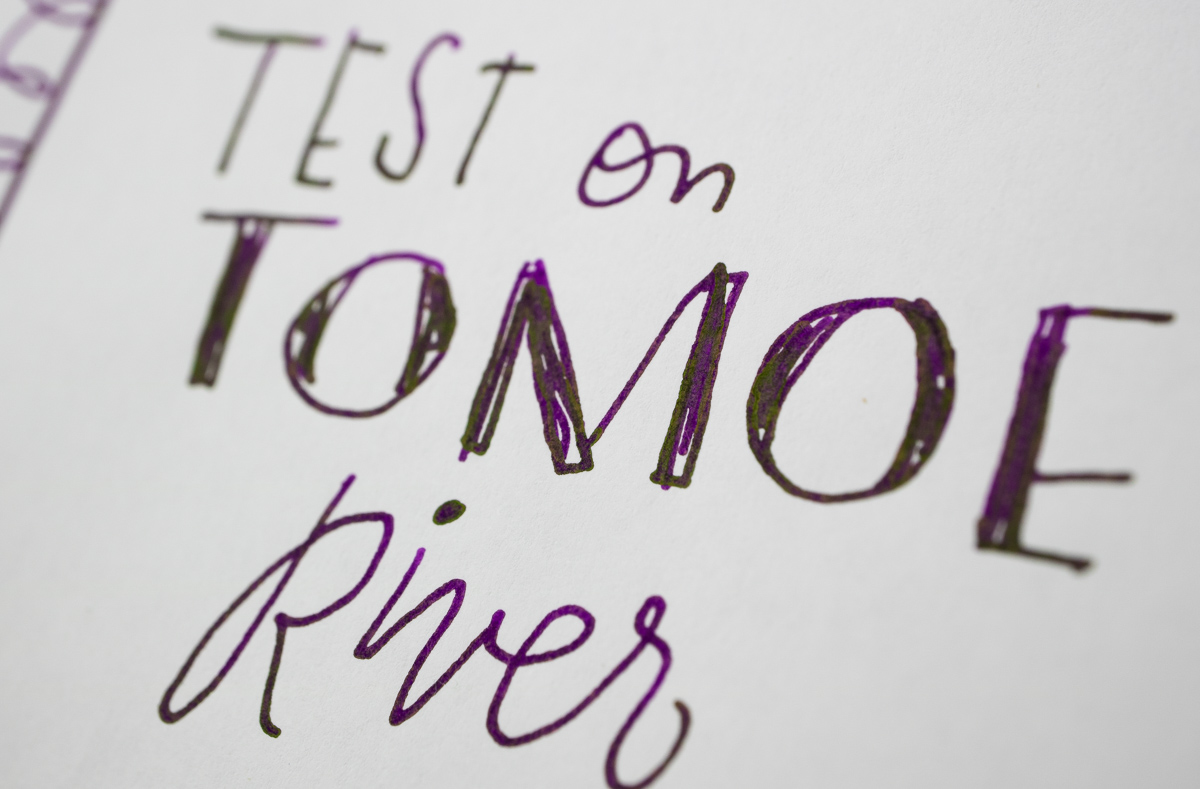 TEST on
TOMOE
River